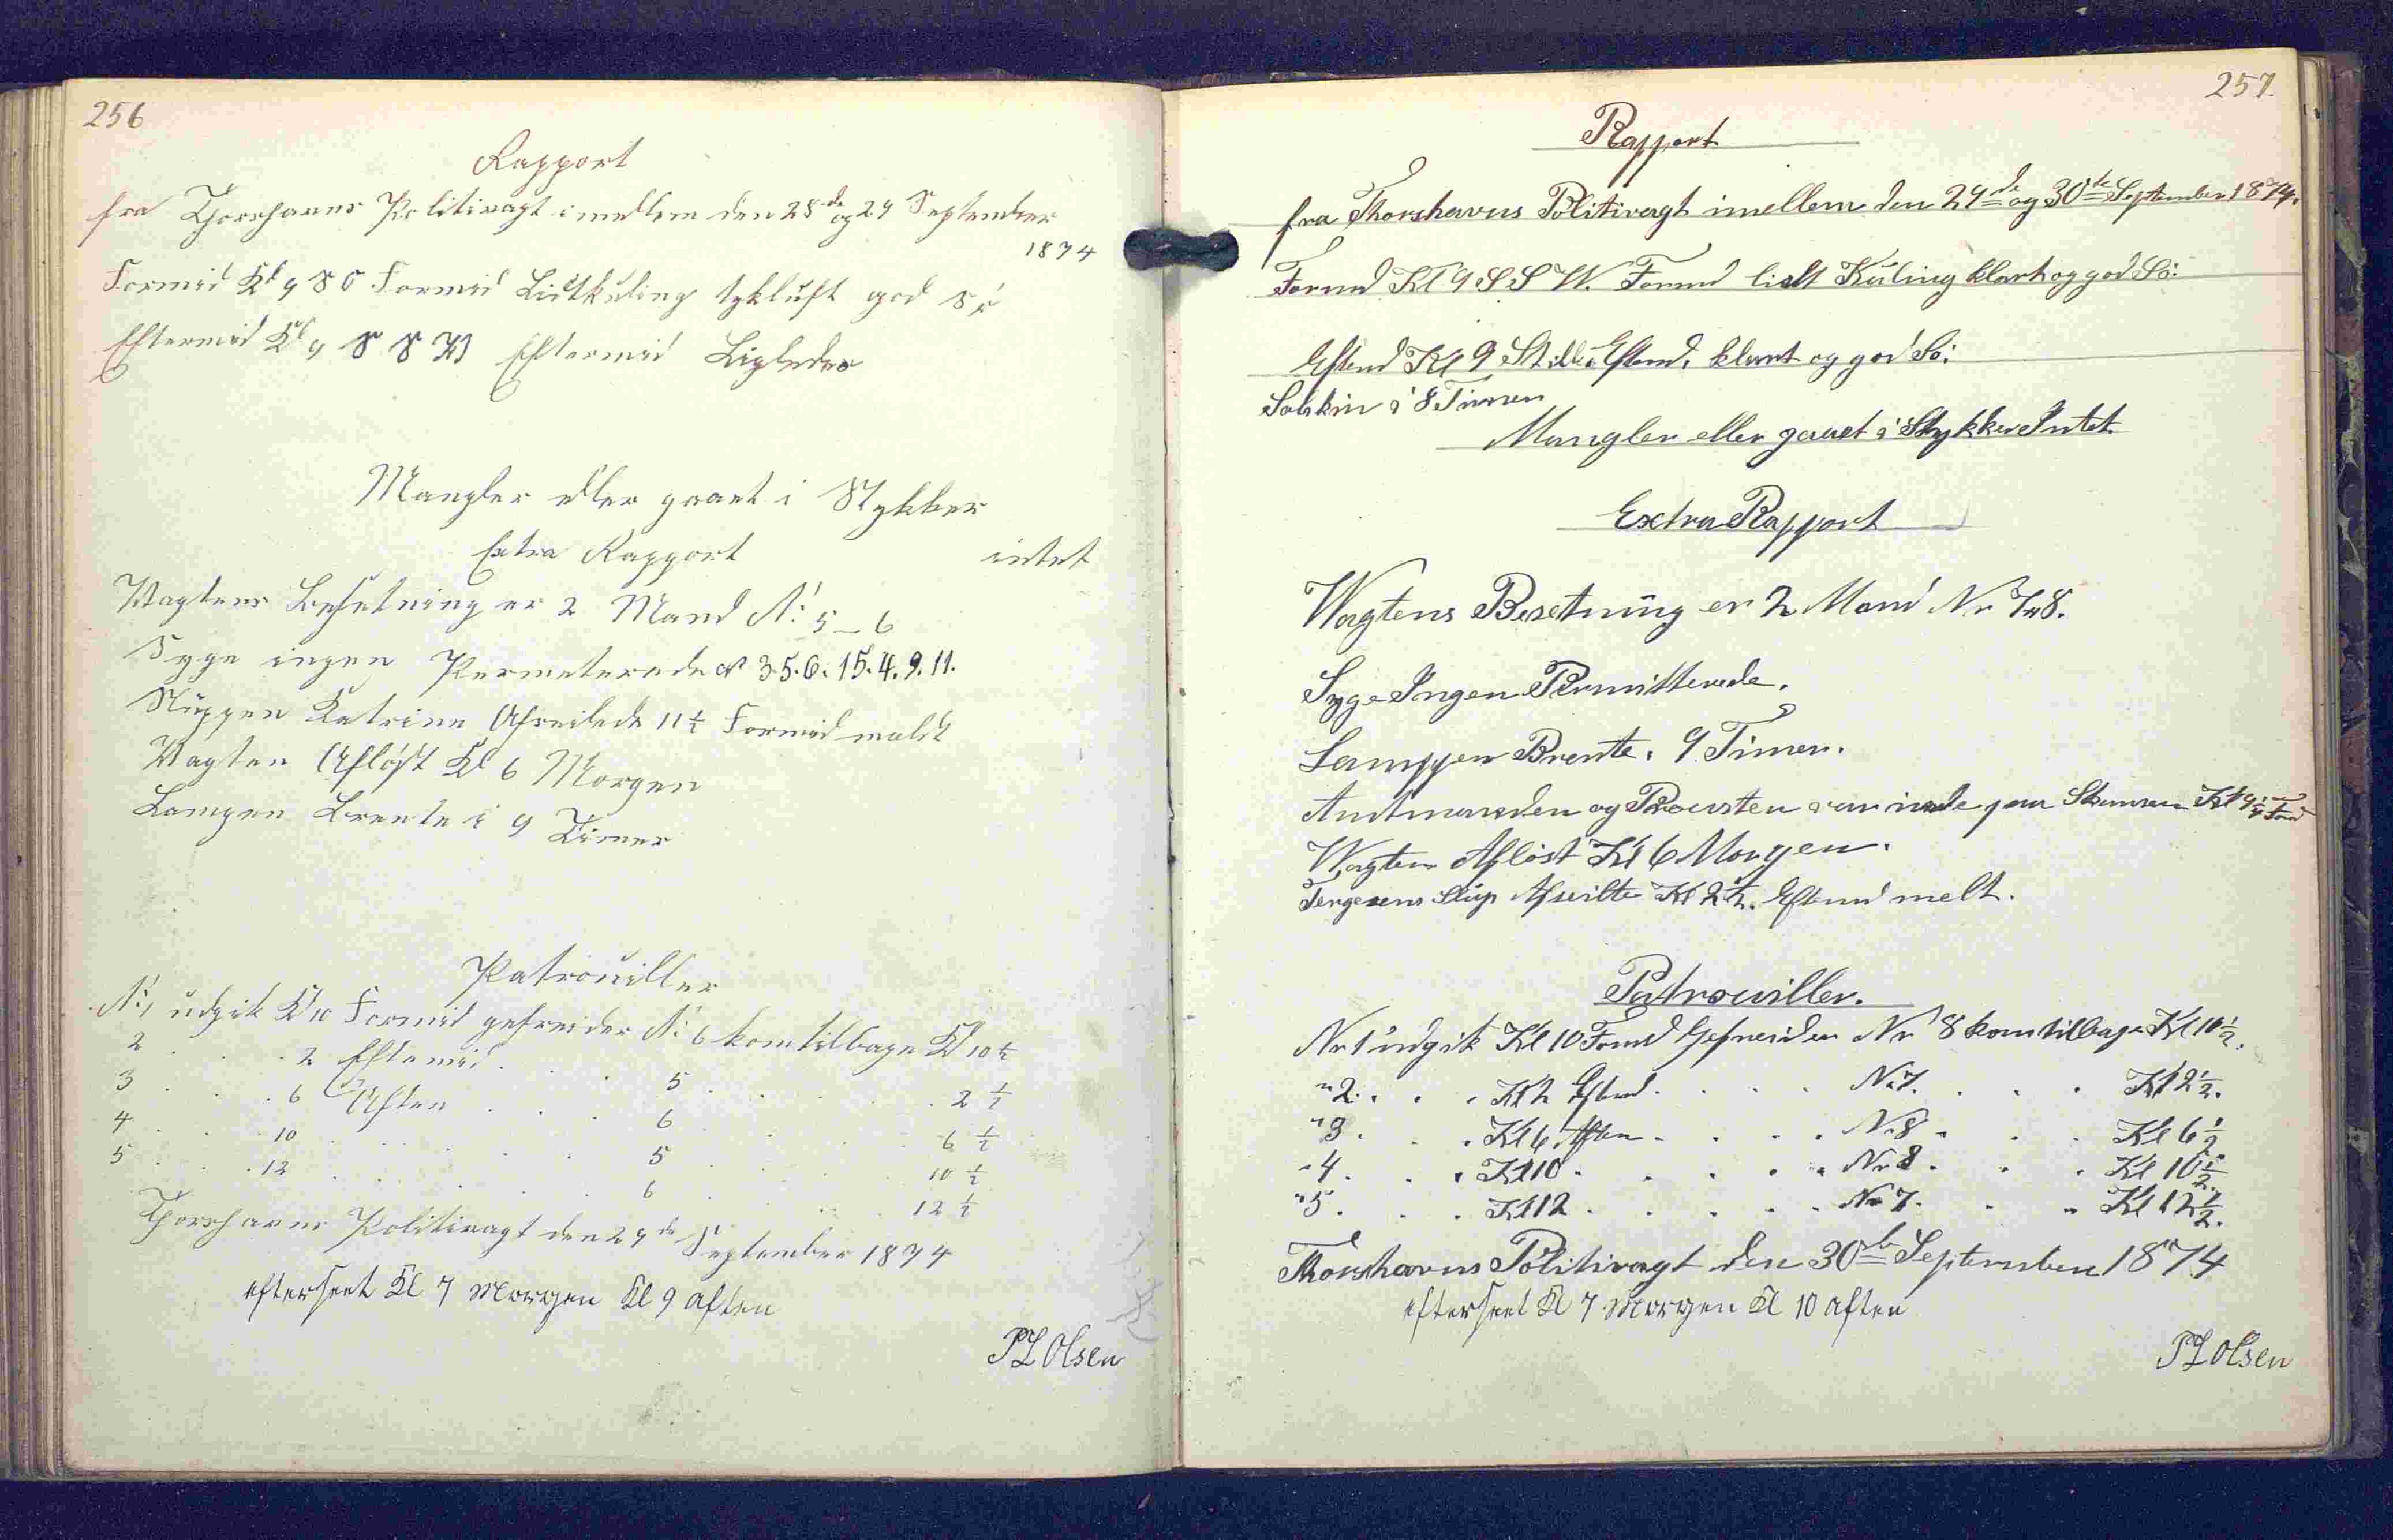 256
Rapport
fra Thorshavns Politivagt imellem den 28de og 29 September
1874
Formid Kl 9 S O Formid Lidt kuling tykluft god Sö
Eftermid Kl 9 S S W Eftermid Ligeledes
Mangler eller gaaet i Stykker
intet
Extra Rapport
Vagtens Besetning er 2 Mand No 5 - 6
Syge ingen Permeterede No 3.5.6.15.4.9.11.
Sluppen Katrine Afseilede 11 1/2 Formid maldt
Vagten Afløst Kl 6 Morgen
Lampen Brente i 9 Timer
Patrouiller
No 1 udgik Kl 10 Formid gefreider No 6 kom tilbage Kl 10 1/2
2 . . . 2 Eftemid . . . 5 . . . 2 1/2
3 . . . 6 Aften . . . 6 . . . 6 1/2
4 . . . 10 . . . 5 . . . 10 1/2
5 . . . 12 . . . 6 . . . 12 1/2
Thorshavns Politivagt den 29de September 1874
efterseet Kl 7 Morgen Kl 9 aften
PL Olsen
257.
Rapport
fra Thorshavns Politivagt imellem den 29de og 30te September 1874.
Formd Kl 9 S S W. Formd lidt Kuling klart og god Sö:
Eftmd Kl 9 Stille Eftmd. klart og god Sö:
Solskin i 8 Timer
Mangler eller gaaet i Stykker Intet
Extra Rapport
Wagtens Besetning er 2 Mand Nr 7 8.
Syge Ingen Permitterede.
Lamppen Brente. 9 Timer.
Amtmanden og Prousten var inde paa Skansen Kl 9 1/4 Fmd
Wagten Afløst Kl 6 Morgen.
Slup Kl 2 1/2. Eftmd melt.
Patrouiller.
Nr 1 udgik Kl 10 Formd Gefreider Nr 8 kom tilbage Kl 10 1/2.
" 2. . . . Kl 2 Eftmd. . . . Nr 7. . . . Kl 2 1/2.
" 3. . . . Kl 6 Aften . . . . Nr 8 . . . Kl 6 1/2
" 4. . . . Kl 10 . . . . Nr 8 . . . Kl 10 1/2.
" 5. . . . Kl 12 . . . . Nr 7. . . . Kl 12 1/2.
Thorshavns Politivagt den 30te September 1874
efterseet Kl 7 Morgen Kl 10 aften
PL Olsen